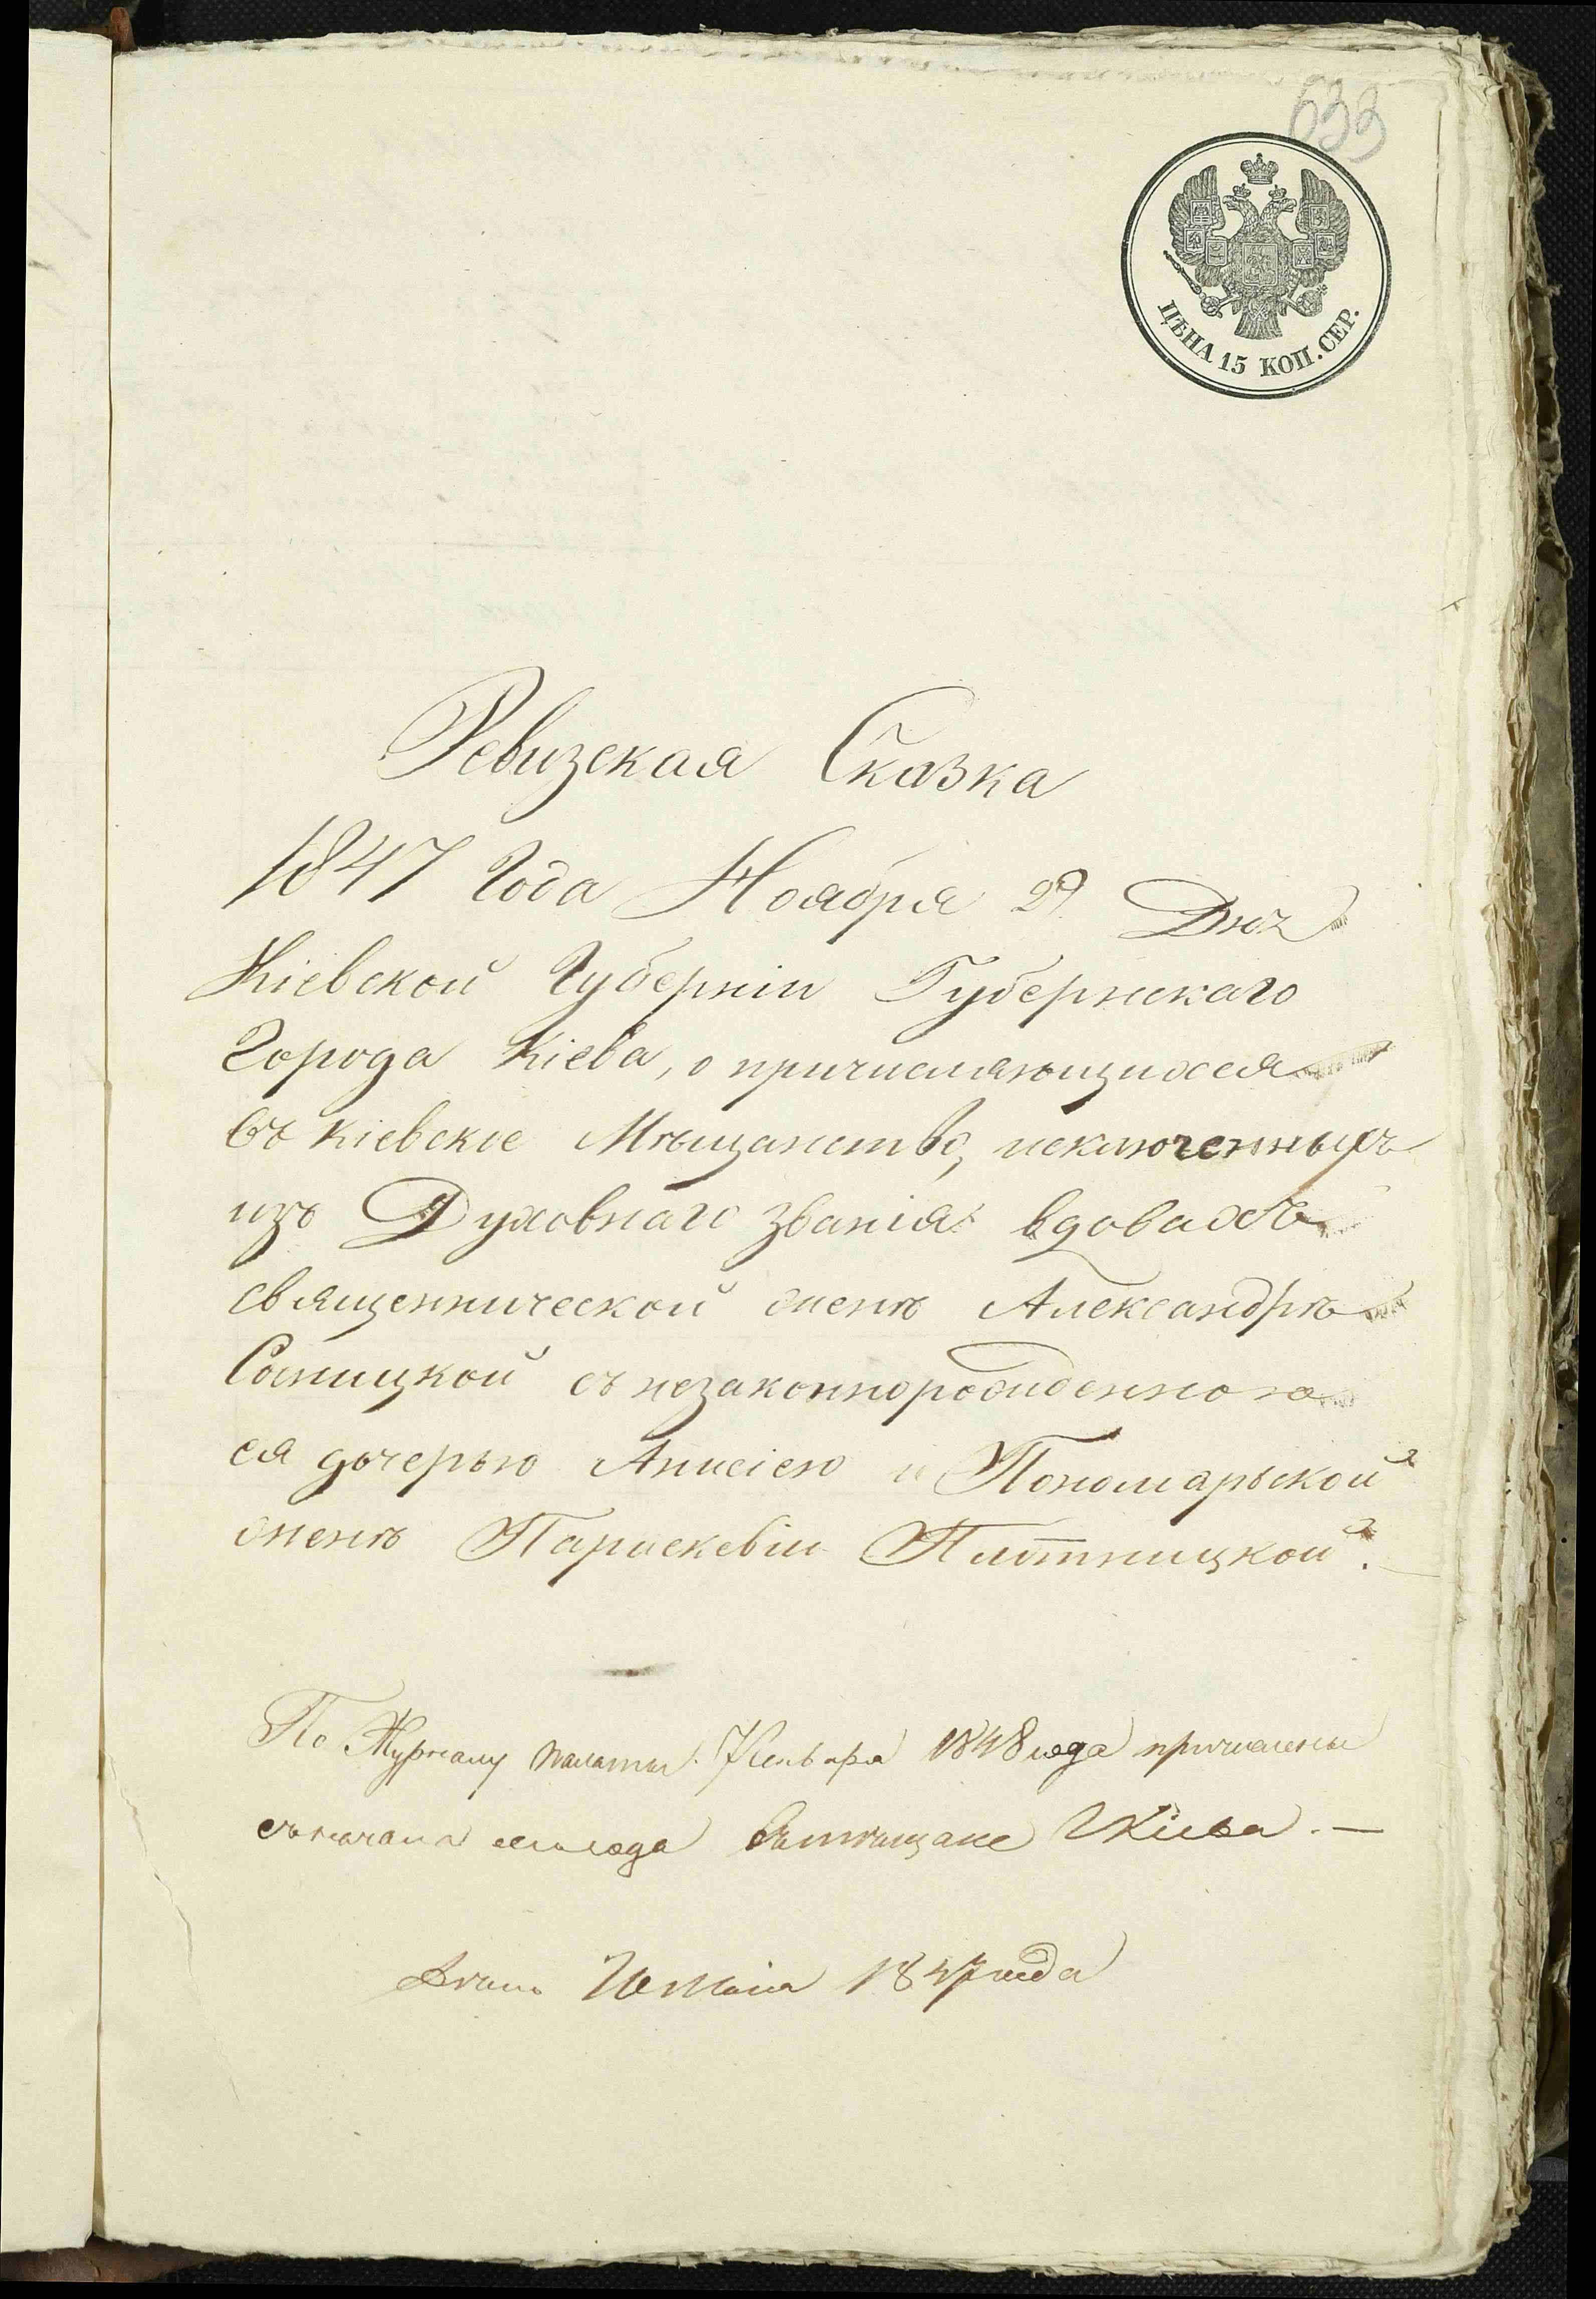 633
ЦѢНА 15 КОП. СЕР.
Ревизская Сказка
1847 Года Ноября 29 Дня
Кіевской Губерніи Губернскаго
Города Кіева, о причисляющихся
въ Кіевское Мѣщанство, исключенныхъ
изъ Духовнаго званія вдовахъ
священнической женѣ Александрѣ
Саницкой съ незаконнорожденною
ея дочерью Анисіею и Пономарьской
женѣ Параскевіи Плотницкой.
По Журналу палаты Января 1848 года причислены
съ начала года въ мѣщане Кіева. —
1847 года